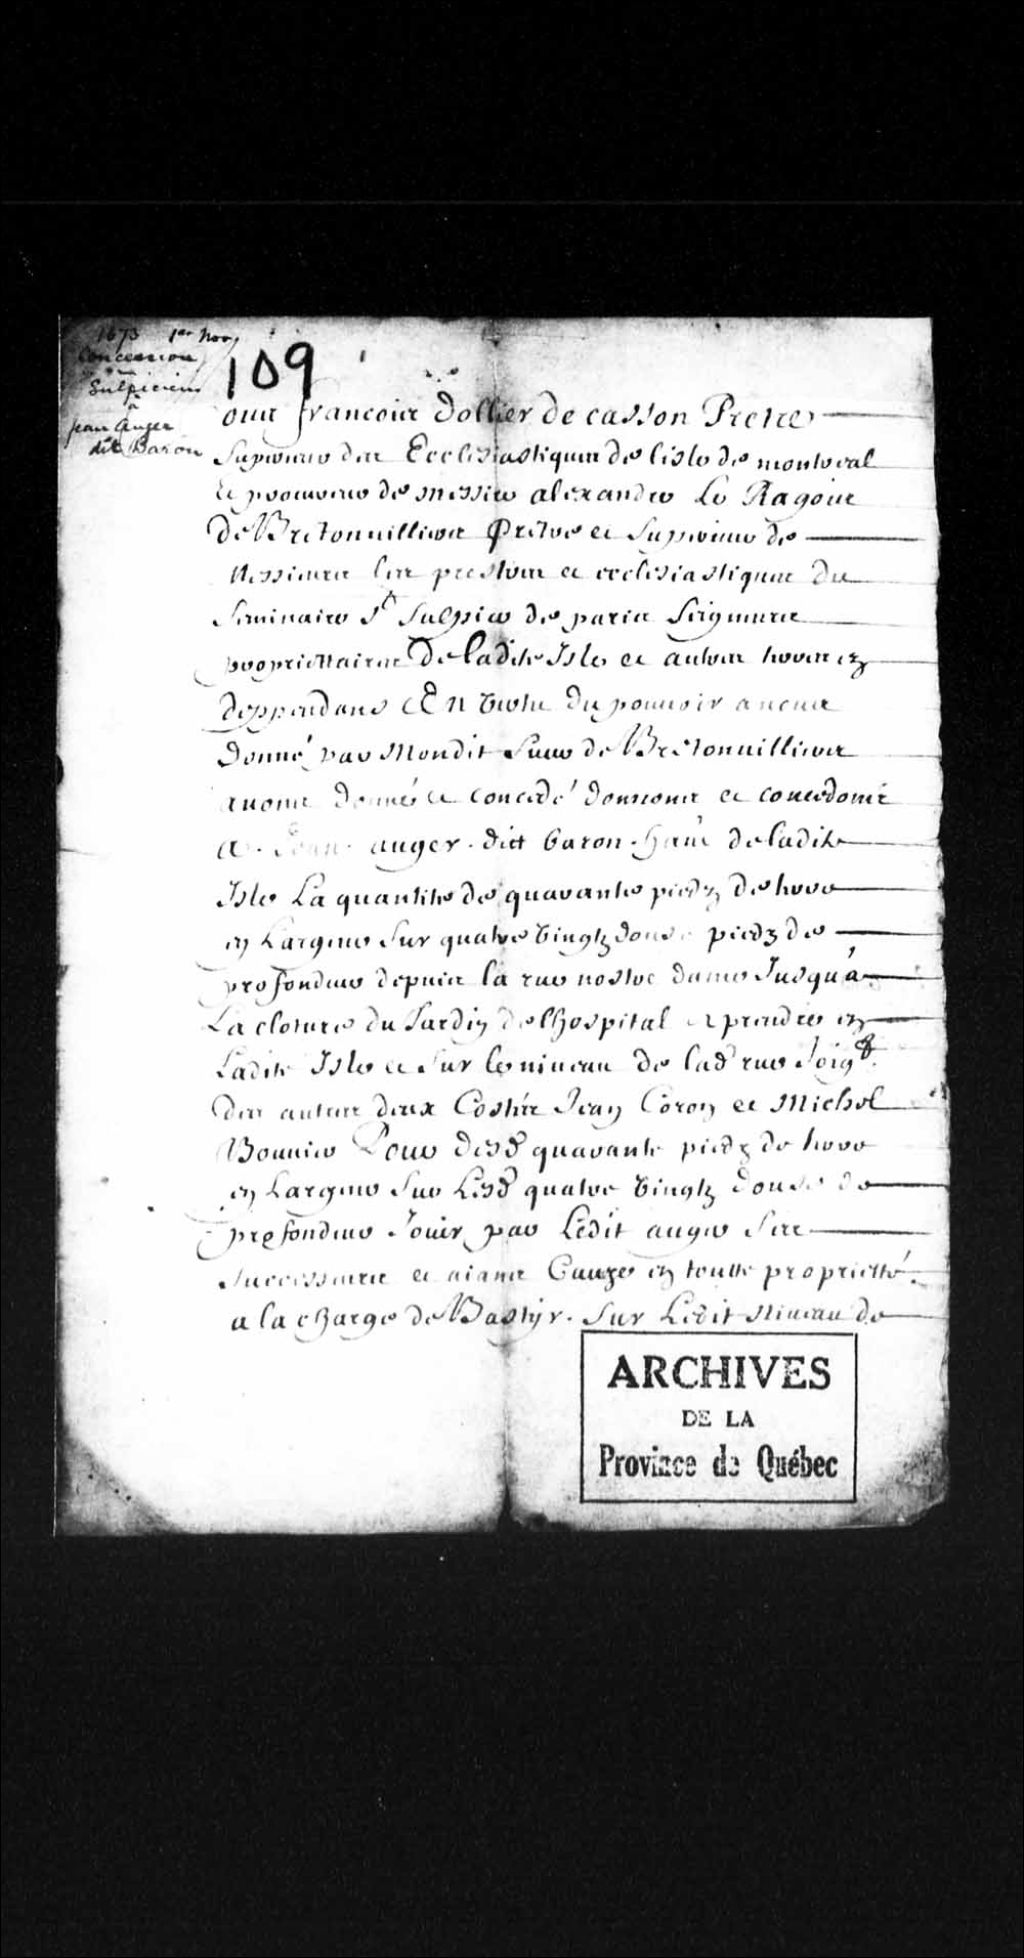 1673 1er Nov
Concession
Sulpiciens
à
Jean Auger
dit Baron
109
ous francois dollier de casson Pretre
Superieur des Ecclesiastiques de lisle de montreal
et procureur de messire alexandre Le Ragois
de Bretonvilliers Pretre et Superieur de
Messieurs les prestres et ecclesiastiques du
Seminaire St Sulpice de paris Seigneurs
proprietaires De ladite Isle et autres terres en
deppendans En vertu du pouvoir a nous
donné par Mondit Sieur de Bretonvilliers
avons donné et concedé donnons et concedons
a Jean auger dit baron hant de ladite
Isle La quantité de quarante piedz de terre
en Largeur Sur quatre vingtz douse piedz de
profondeur depuis la rue nostre dame Jusqu'à
La closture du Jardin de lhospital a prendre en
Ladite Isle et Sur le niveau de lad rue Joig
des autres deux Costés Jean Coron et Michel
Bouvier Pour desd quarante piedz de terre
en Largeur Sur Lesd quatre vingtz douse de
profondeur Jouir par Ledit auger Ses
Successeurs et aians Cauze en toutte proprietté
a la charge de Bastir Sur Ledit Niveau de
ARCHIVES
DE LA
Province de Québec